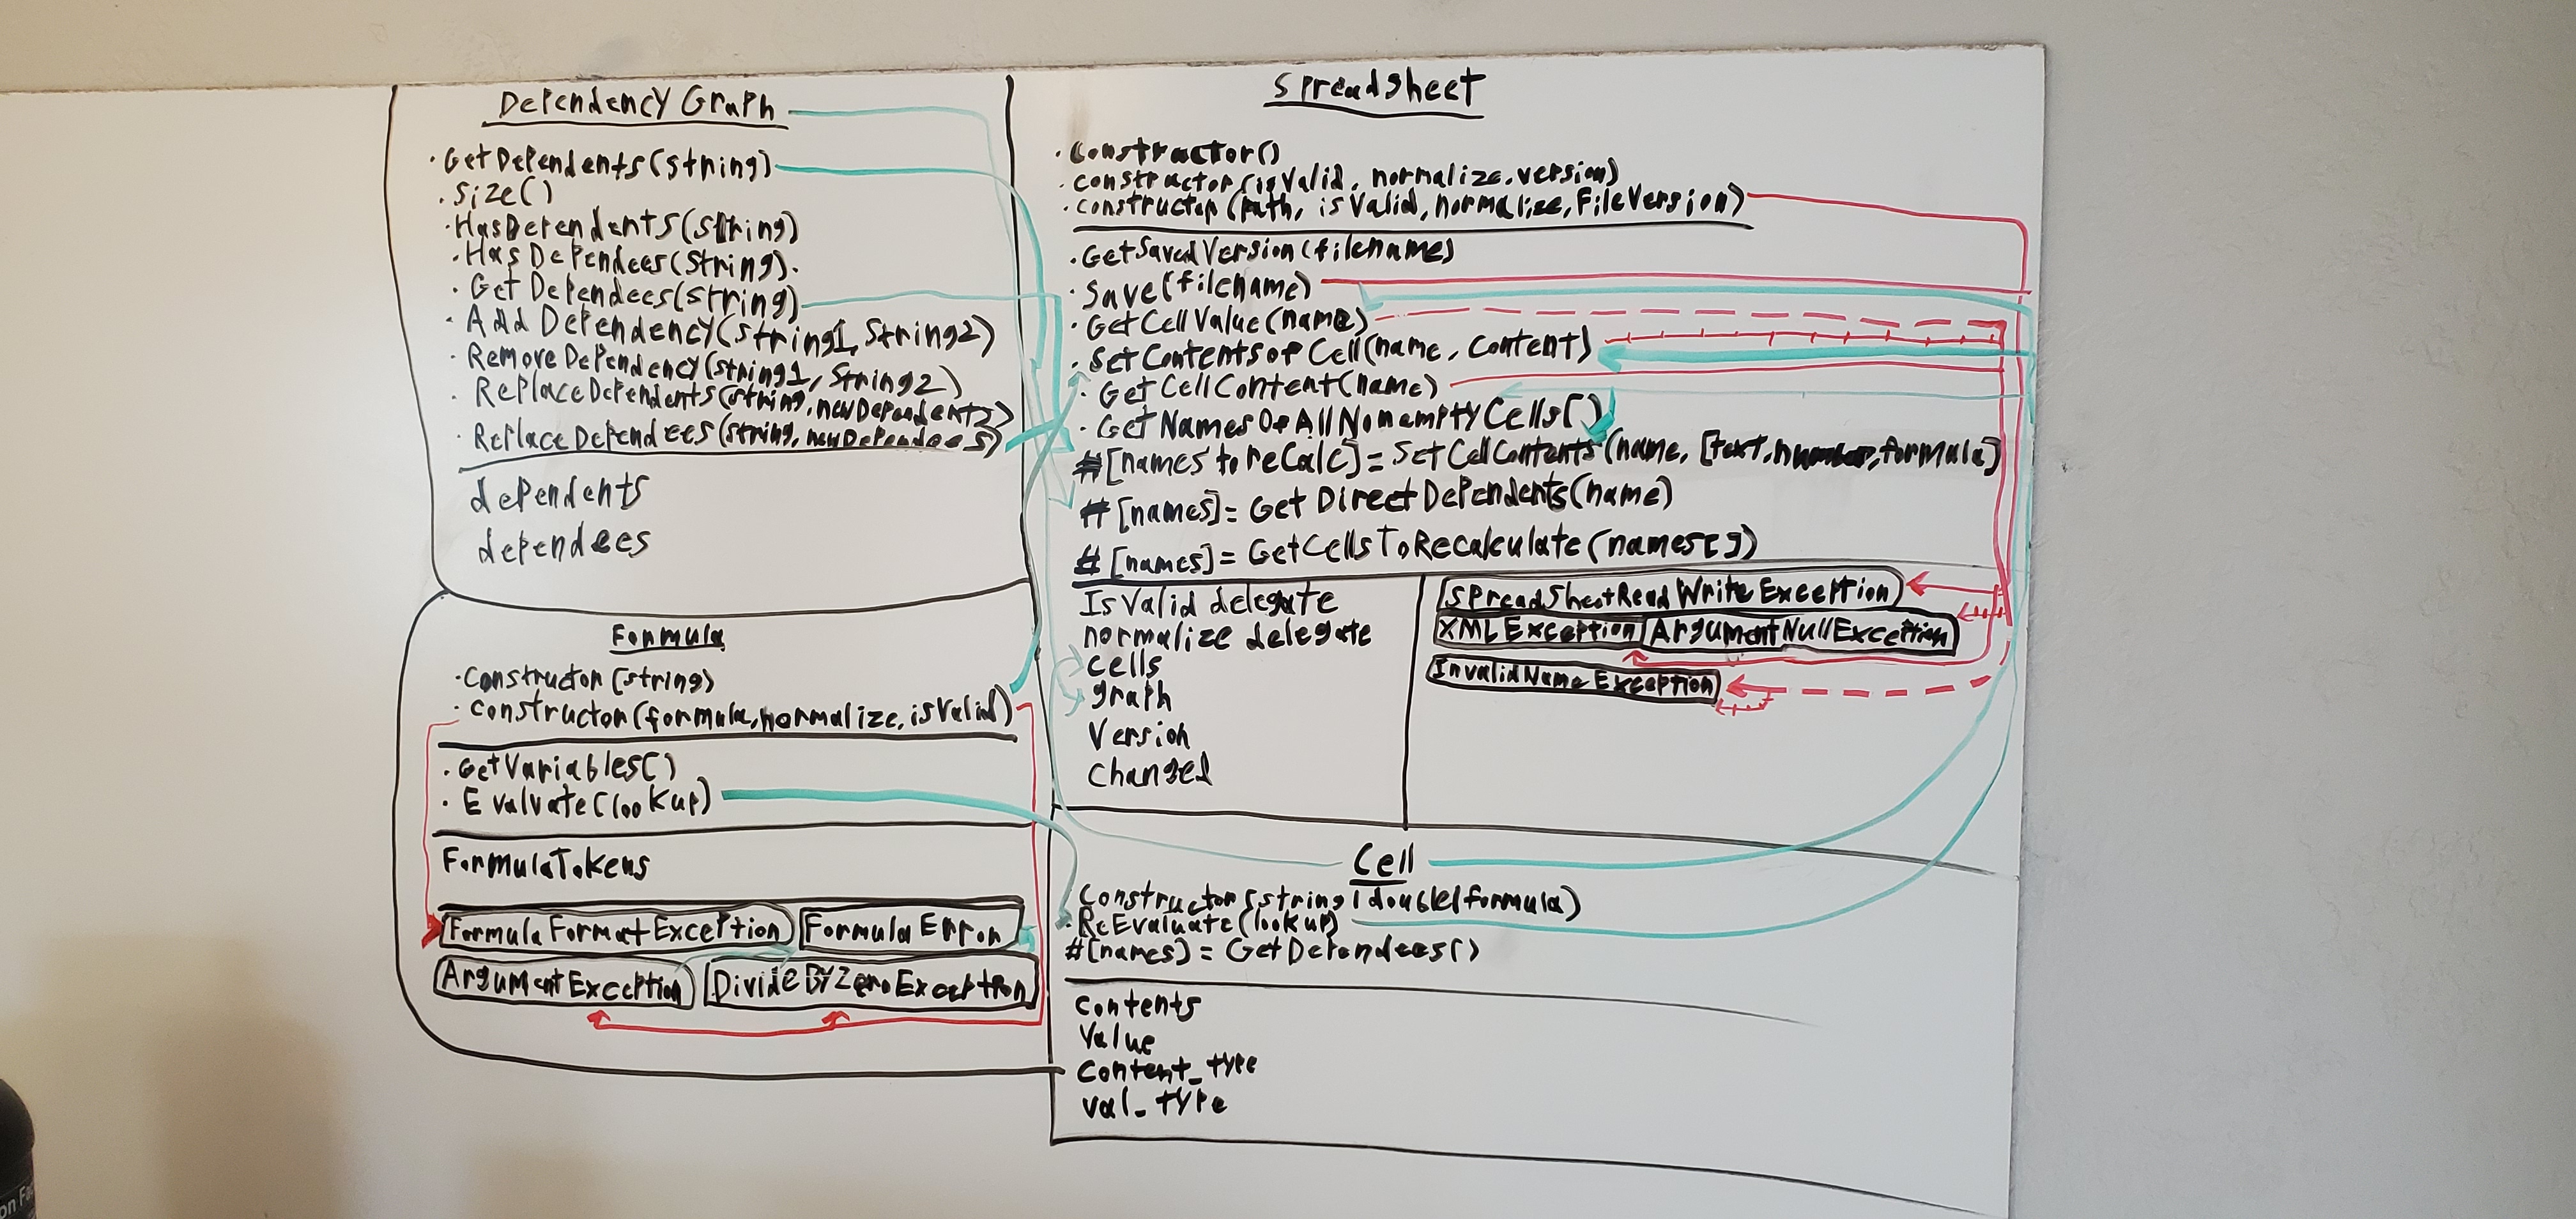 Dependency Graph
· GetDependents(string)
· Size()
· HasDependents(string)
· HasDependees(string).
· GetDependees(string)
· AddDependency(string1, String2)
· RemoveDependency(string1, String2)
· ReplaceDependents(string, newDependents)
· ReplaceDependees(string, newDependees)
dependents
dependees
Formula
· Constructor(string)
· constructor(formula, normalize, isValid)
· GetVariables()
· Evalvate(lookup)
FormulaTokens
FormulaFormatException
Formula Error
ArgumentException
DivideByZeroException
Spreadsheet
· Constructor()
· constructor(isValid, normalize, version)
· constructor(path, isValid, normalize, FileVersion)
· GetSavedVersion(filename)
· Save(filename)
· GetCellValue(name)
· SetContentsofCell(name, Content)
· GetCellContent(name)
· GetNamesOfAllNonemptyCells()
#[names to reCalc] = SetCellContents(name, [text, number, formula]
#[names] = GetDirectDependents(name)
#[names] = GetCellsToRecalculate(names[])
IsValid delegate
normalize delegate
cells
graph
Version
Changed
SpreadSheetReadWriteException
XMLException
ArgumentNullException
InvalidNameException
Cell
Constructor(string|double|formula)
· ReEvaluate(lookup)
#[names] = GetDependees()
Contents
Value
Content_type
val_type